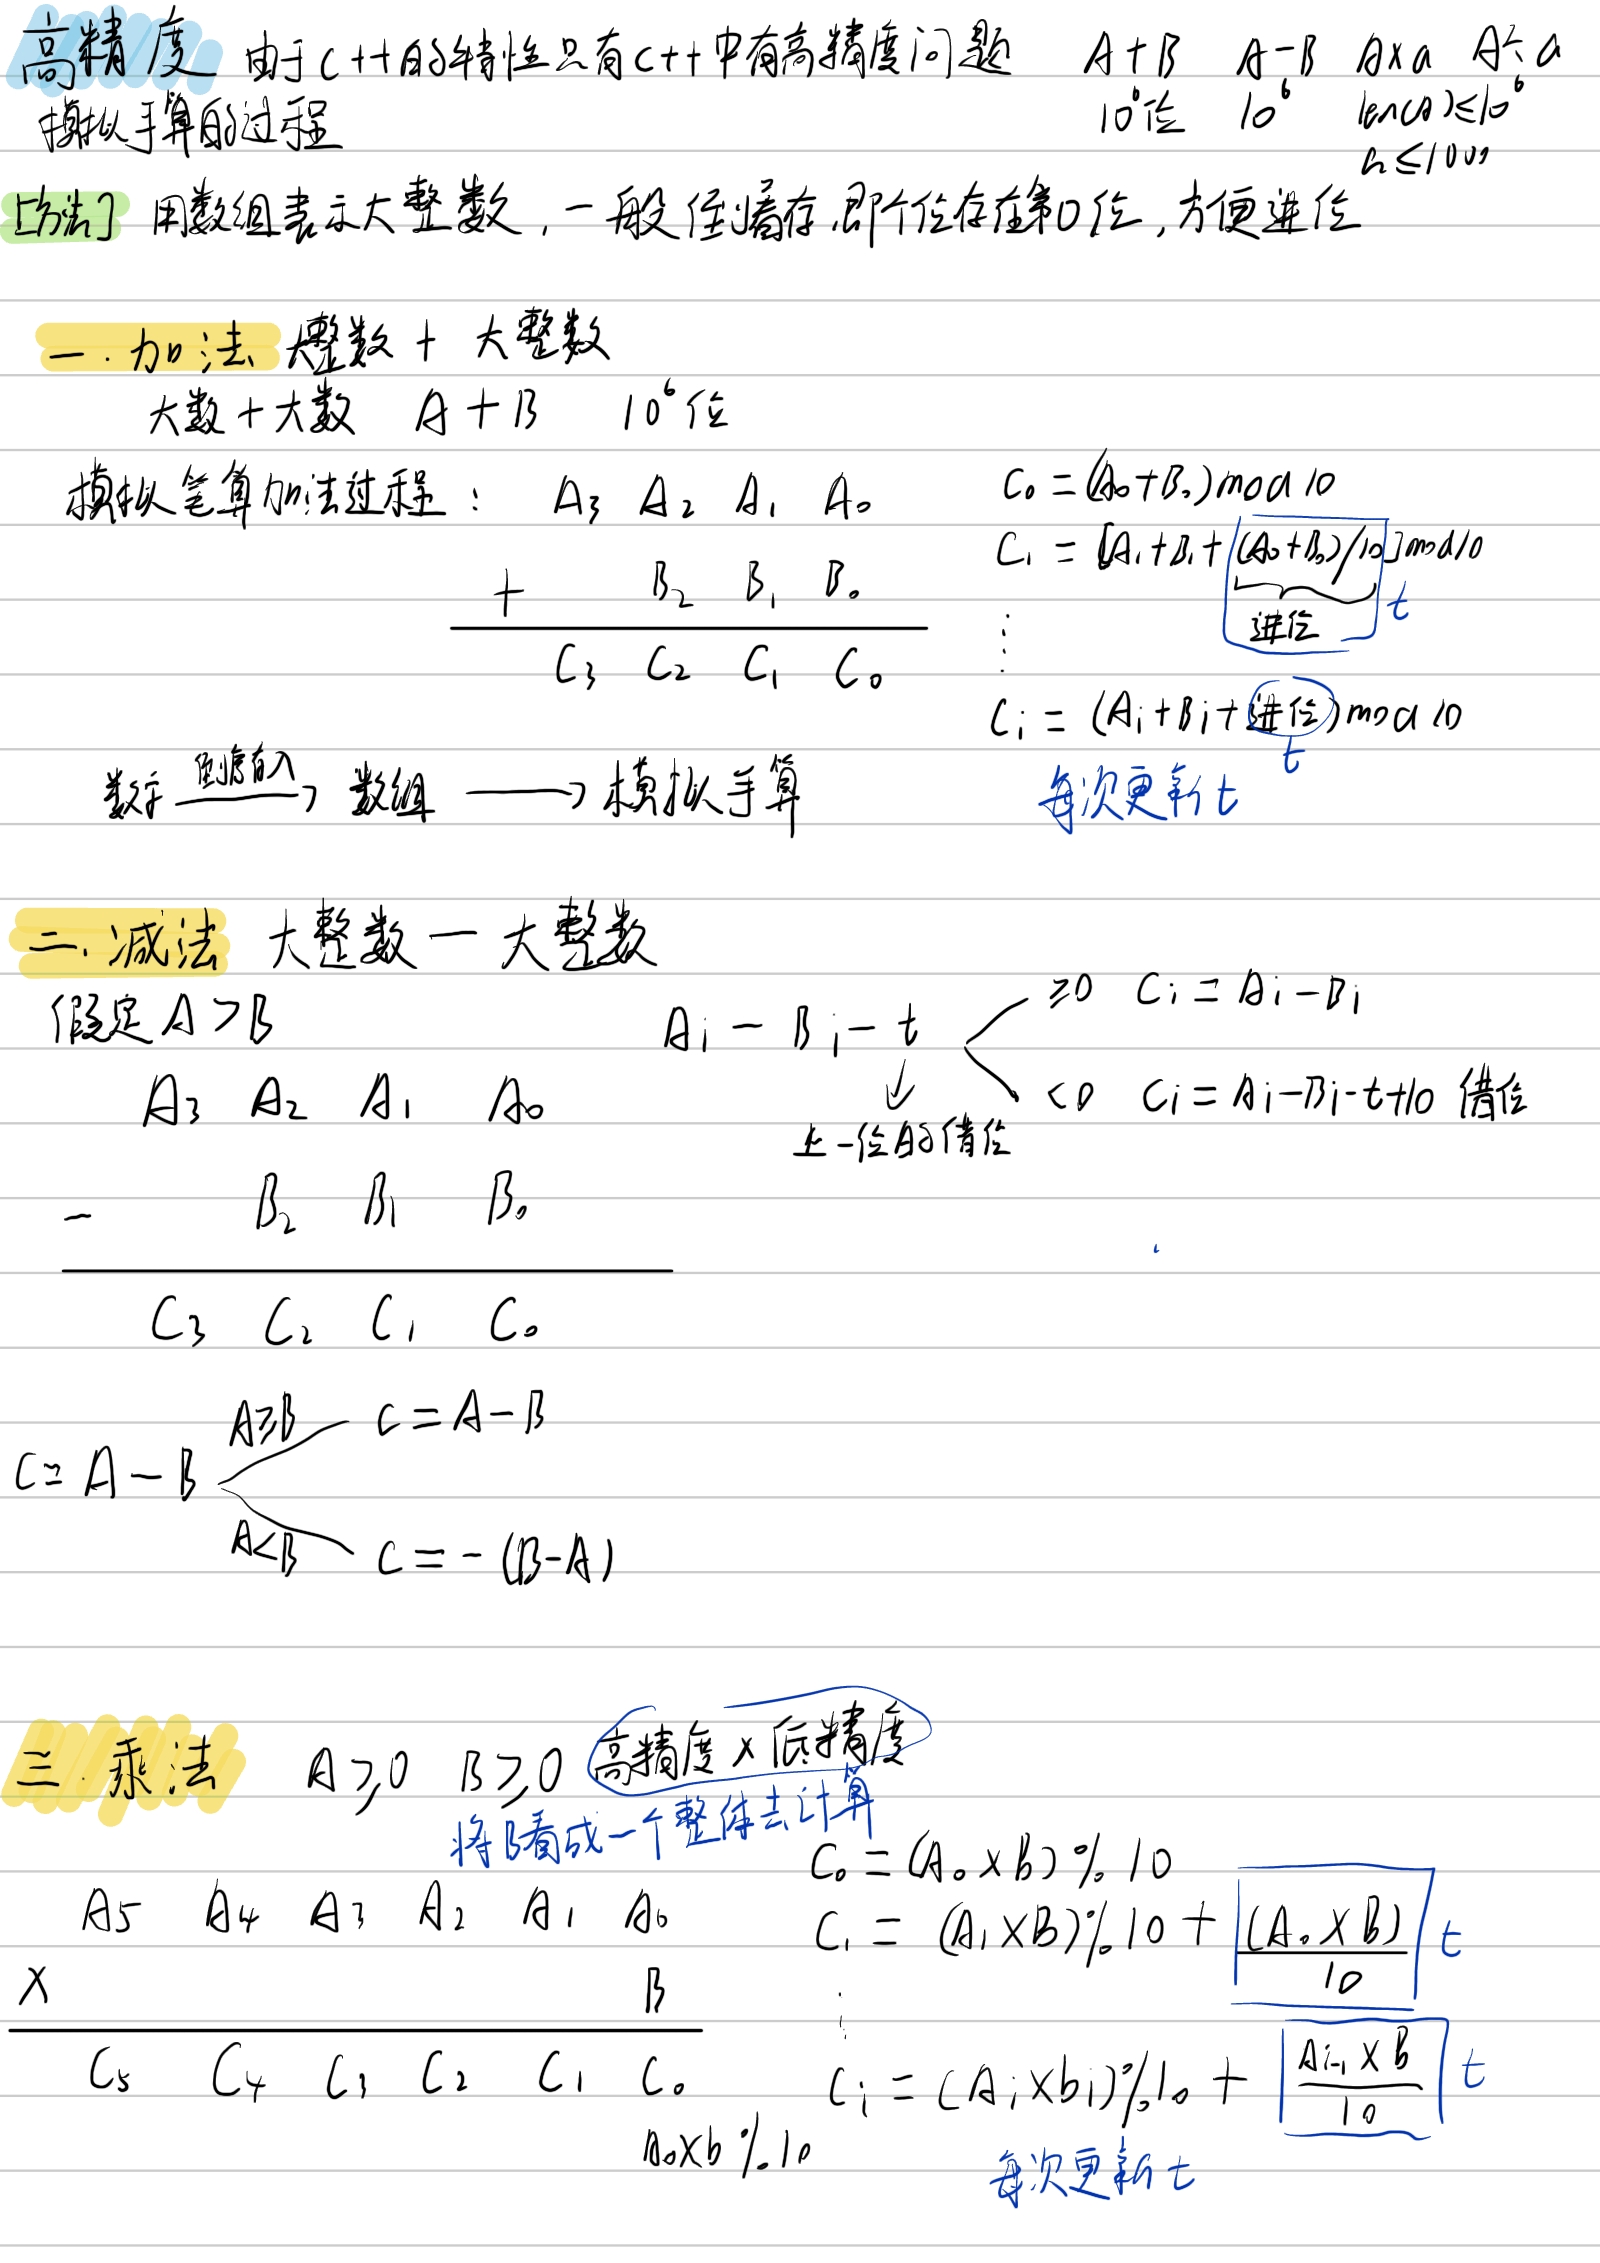 高精度 由于C++的特性只有C++中有高精度问题 A+B A-B A×a A÷a
模拟手算的过程 10⁶位 10⁶ len(A)≤10⁶
a≤1000
[方法] 用数组表示大整数，一般倒着存，即个位存在第0位，方便进位
一.加法 大整数 + 大整数
大数+大数 A+B 10⁶位
模拟笔算加法过程： A₃ A₂ A₁ A₀
+ B₂ B₁ B₀
C₃ C₂ C₁ C₀
C₀ = (A₀+B₀) mod 10
C₁ = [A₁+B₁+(A₀+B₀)/10] mod 10
进位 t
⋮
Cᵢ = (Aᵢ+Bᵢ+进位) mod 10
t
每次更新t
数字 → 数组 → 模拟手算
二.减法 大整数 — 大整数
假定A>B
A₃ A₂ A₁ A₀
- B₂ B₁ B₀
C₃ C₂ C₁ C₀
Aᵢ - Bᵢ - t
≥0 Cᵢ = Aᵢ-Bᵢ
<0 Cᵢ = Aᵢ-Bᵢ-t+10 借位
↓
上一位的借位
C = A - B
A≥B C = A-B
A<B C = -(B-A)
三.乘法 A≥0 B≥0 高精度×低精度
将B看成一个整体去计算
A5 A4 A3 A2 A1 A0
× B
C5 C4 C3 C2 C1 C0
A₀×b%10
C₀ = (A₀×B)%10
C₁ = (A₁×B)%10 + (A₀×B)/10 t
⋮
Cᵢ = (Aᵢ×bᵢ)%10 + Aᵢ₋₁×B/10 t
每次更新t